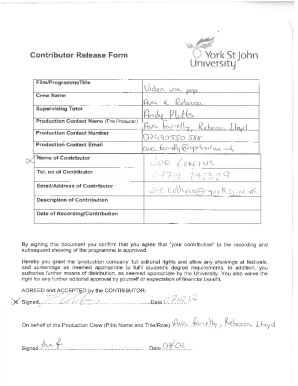 York St John
University
Contributor Release Form
Film/ProgrammeTitle Video vox pop
Crew Name Ava & Rebecca
Supervising Tutor Andy Platts
Production Contact Name (The Producer) Ava Farrelly, Rebecca Lloyd
Production Contact Number
Production Contact Email
Name of Contributor Joe Collins
Tel. no of Contributor
Email/Address of Contributor
Description of Contribution
Date of Recording/Contribution
By signing this document you confirm that you agree that "your contribution" to the recording and
subsequent showing of the programme is approved.
Hereby you grant the 'production company' full editorial rights and allow any showings at festivals,
and screenings as deemed appropriate to fulfil student degree requirements. In addition, you
authorise further means of distribution, as deemed appropriate by the University. You also waive the
right for any further editorial approval by yourself or expectation of financial benefit.
AGREED AND ACCEPTED by the CONTRIBUTOR:
Signed Date
On behalf of the Production Crew (Print Name and Title/Role) Ava Farrelly, Rebecca Lloyd
Signed Date